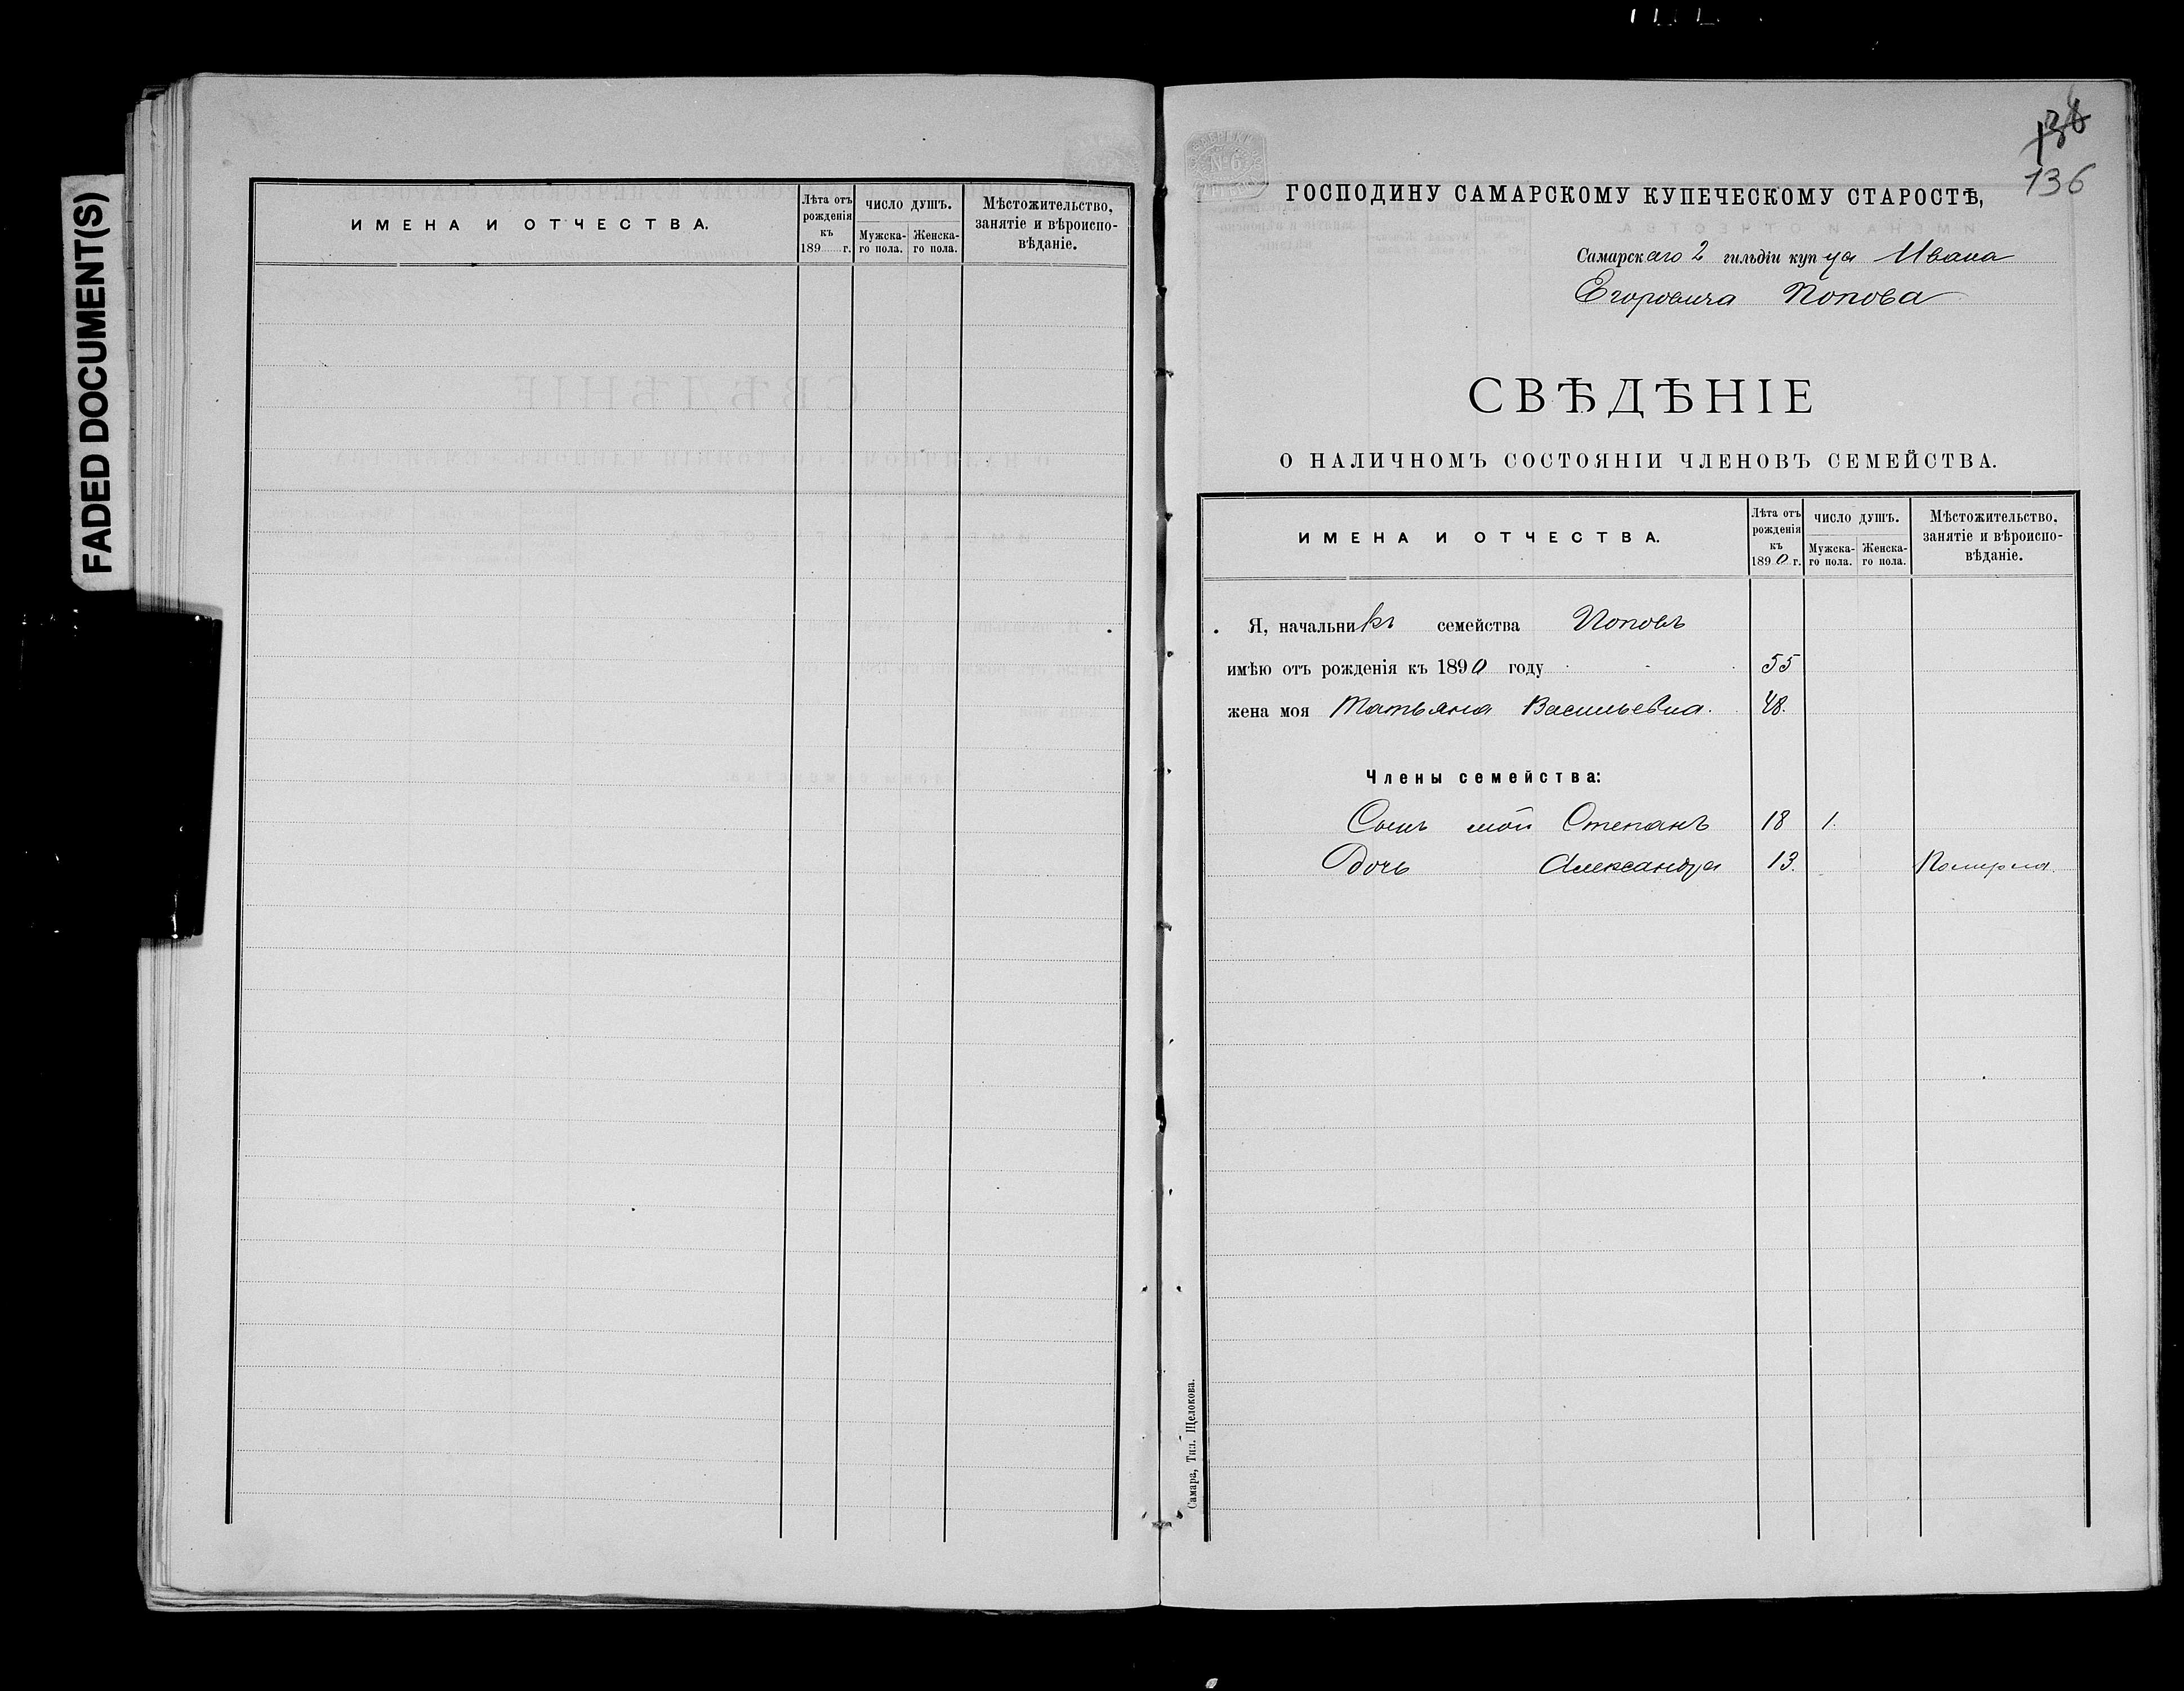 FADED DOCUMENT(S)
ИМЕНА И ОТЧЕСТВА.
Лѣта отъ рожденія къ 189 г.
ЧИСЛО ДУШЪ.
Мужска-го пола.
Женска-го пола.
Мѣстожительство,
занятіе и вѣроиспо-
вѣданіе.
136
№ 6
ГОСПОДИНУ САМАРСКОМУ КУПЕЧЕСКОМУ СТАРОСТѢ,
Самарскаго 2 гильдіи купца Ивана
Егоровича Попова
СВѢДѢНІЕ
О НАЛИЧНОМЪ СОСТОЯНІИ ЧЛЕНОВЪ СЕМЕЙСТВА.
ИМЕНА И ОТЧЕСТВА.
Лѣта отъ рожденія къ 1890 г.
ЧИСЛО ДУШЪ.
Мужска-го пола.
Женска-го пола.
Мѣстожительство,
занятіе и вѣроиспо-
вѣданіе.
Я, начальникъ семейства Поповъ
имѣю отъ рожденія къ 1890 году 55
жена моя Татьяна Васильевна. 48.
Члены семейства:
Сынъ мой Степанъ 18 1.
Дочь Александра 13. Померла.
Самара, Тип. Щелокова.